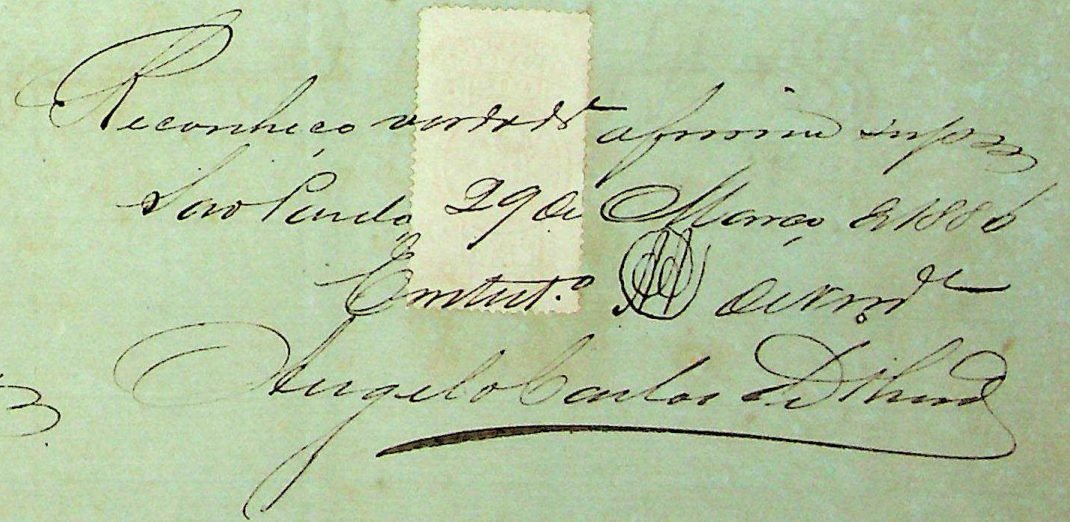 Reconheço verdadr.ª a firma supra
São Paulo, 29 de Março de 1886
Em test.º de verd.e
Angelo Carlos de